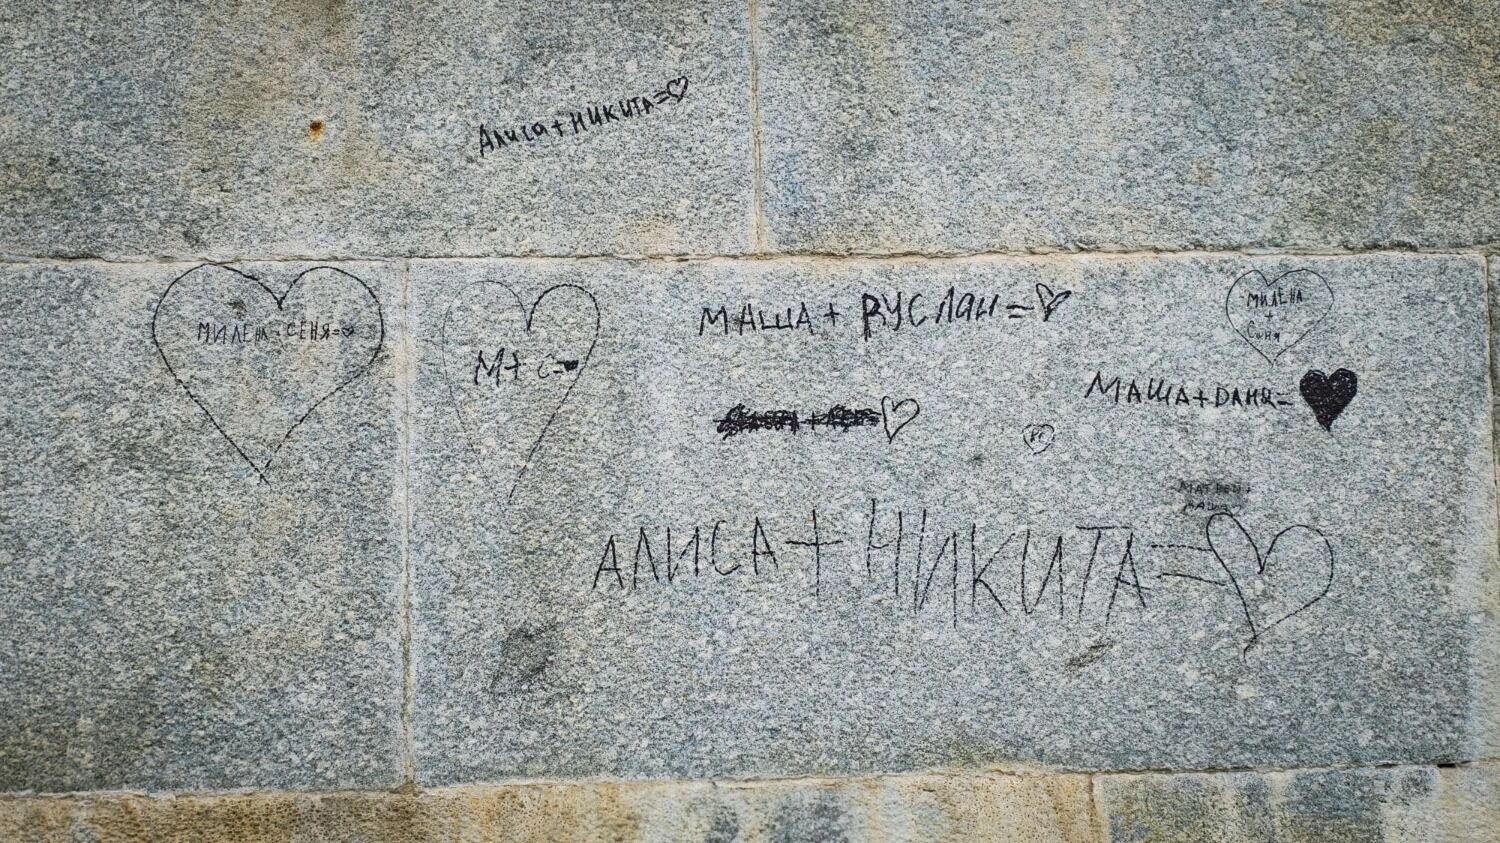 Алиса+НИКИТА=♡
МИЛЕНА+СЕНЯ=♡
М+С=♥
МАША+RУСЛАН=♡
МИЛЕНА
+
Сеня
МАША+DАНЯ=♥
МАША
АЛИСА+НИКИТА=♡